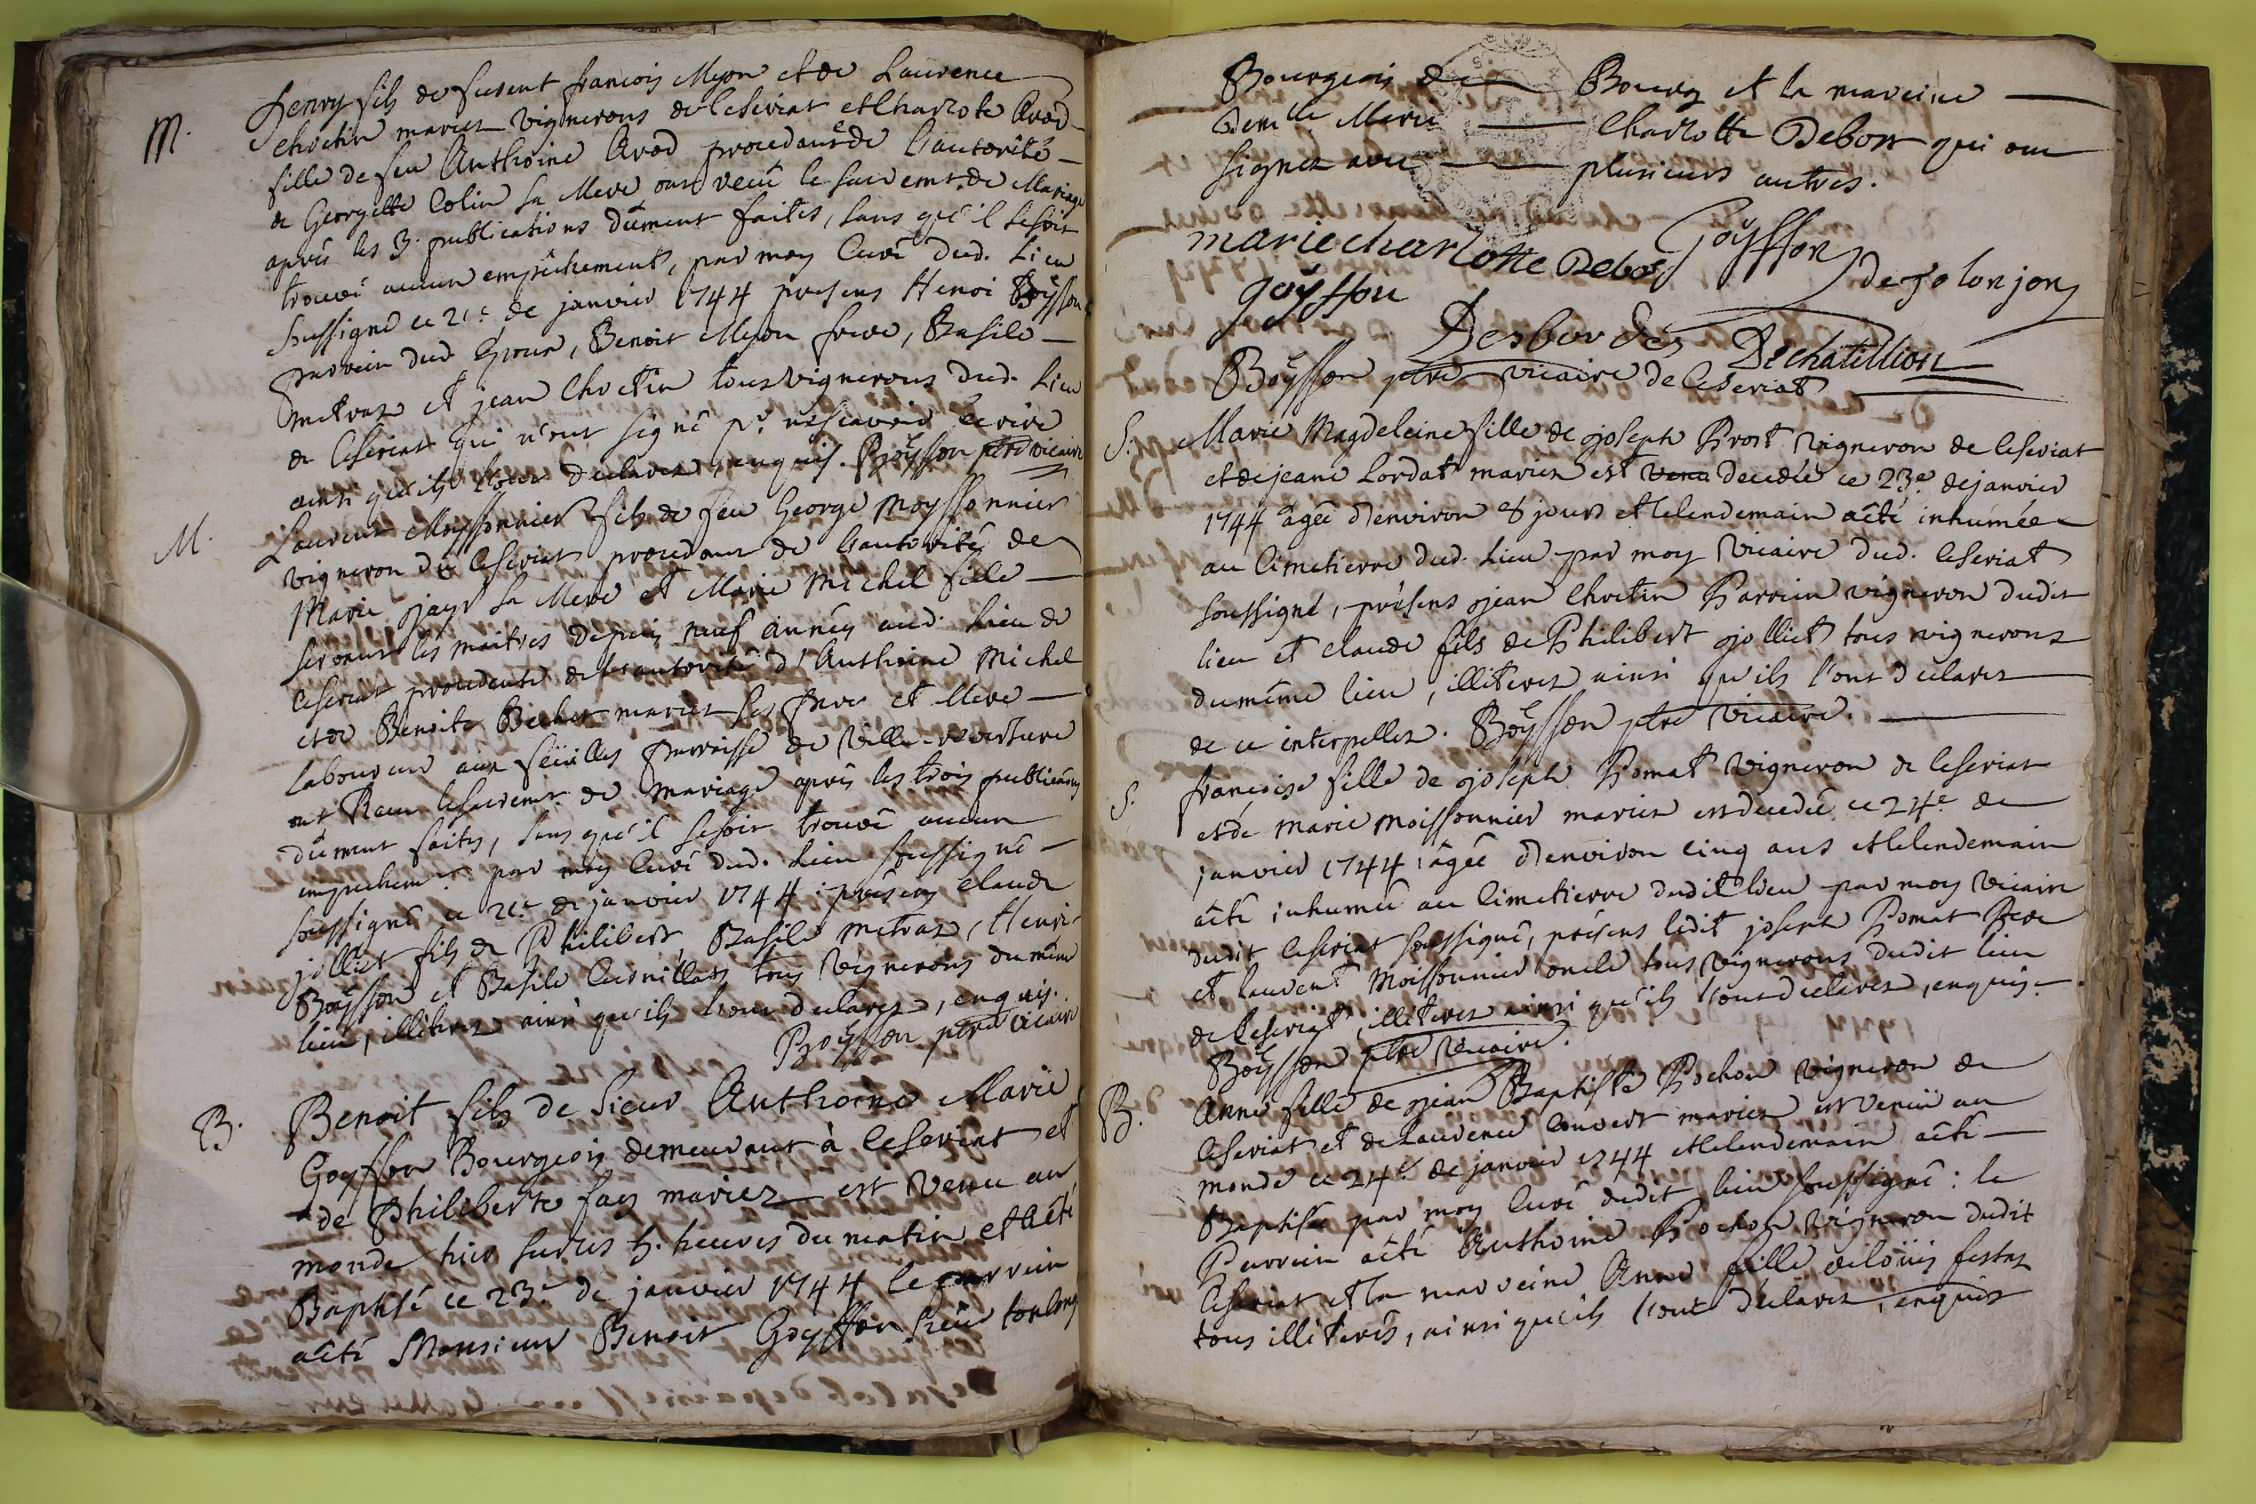 M.
henry fils de fusent francois Myon et de Laurence
Chretin mariez vignerons de Ceseriat et Charlote Avod
fille de feu Anthoine Avod procedans de l'autorité
de Georgette Colin sa Mere ont recû le sacremt. de Mariage
après les 3. publications dûment faites, sans qu'il se soit
trouvé aucun empêchement, par moy Curé dud. Lieu
soussigné ce 21e de janvier 1744 presens Henri Boÿsson
parrein dud. Epoux, Benoit Myon frere, Basile
metraz et jean Chretin tous vignerons dud. Lieu
de Ceseriat qui n'ont signé pr. ne scavoir ecrire
ainsi qu'ils l'ont declarez, enquis. Boÿsson ptre vicaire
M.
Laurent Moyssonnier fils de feu George Moyssonnier
vigneron de Ceseriat procedant de l'autorité de
Marie jayr sa Mere et Marie Michel fille
servant les maitres depuis neuf années aud. Lieu de
Ceseriat procedente de l'autorité d'Anthoine Michel
et de Benoite Becher mariez ses pere et Mere
laboureur aux feüilles parroisse de Ville-reversure
ont Receu le sacremt. de mariage après les trois publicaons
dûment faites, sans qu'il se soit trouvé aucun
empechemt. par moy Curé dud. Lieu soussigné
soussigné ce 21e de janvier 1744 présens Claude
jolliet fils de Philibert, Basile metraz, Henri
Boÿsson et Basile Curnillats tous vignerons du même
lieu, illiteres ainsi qu'ils l'ont declarez, enquis.
Boÿsson ptre vicaire
B.
Benoit fils de Sieur Anthoine Marie
Goyffon Bourgeois demeurant à Ceseriat et
de Philiberte fay mariez est venu au
monde hier sur les 5. heures du matin et a été
Baptisé ce 23e de janvier 1744 le parrein
a été Monsieur Benoit Goyffon Sieur Lonlony
Bourgeois de Bourg et la mareine
Demlle Marie Charlotte Debost qui ont
signez avec plusieurs autres.
marie charlotte Debos Goÿffon
goÿffon de folonjon
Desbordes Dechatillion
Boÿsson ptre vicaire de Ceseriat
S.
Marie Magdeleine fille de joseph Prost vigneron de Ceseriat
et de jeane Lordat mariez est venu decedée ce 23e de janvier
1744 âgée d'environ 8 jours et le lendemain a été inhumée
au Cimetierre dud. Lieu par moy Vicaire dud. Ceseriat
soussigné, présens jean Chretin Parrein vigneron dudit
lieu et claude fils de Philibert jolliet tous vignerons
du même lieu, illiterez ainsi qu'ils l'ont declarez
de ce interpellez. Boÿsson ptre vicaire.
S.
francoise fille de joseph Pomat Vigneron de Ceseriat
et de Marie Moissonnier mariez est decedée ce 24e de
janvier 1744 âgée d'environ cinq ans et le lendemain
a été inhumée au Cimetierre dudit lieu par moy vicaire
dudit Ceseriat soussigné, présens ledit joseph Pomat Pere
et laurent Moissonnier oncle tous vignerons dudit lieu
de Ceseriat, illiterez ainsi qu'ils l'ont declarez, enquis.
Boÿsson ptre vicaire.
B.
Anne fille de jean Baptiste Pochon vigneron de
Ceseriat et de Laurence Convert mariez est venüe au
monde ce 24e de janvier 1744 et le lendemain a été
Baptisée par moy Curé dudit lieu soussigné: le
Parrein a été Anthoine Pochon vigneron dudit
Ceseriat et la mareine Anne fille de loüis festaz
tous illiterés, ainsi qu'ils l'ont declarez, enquis